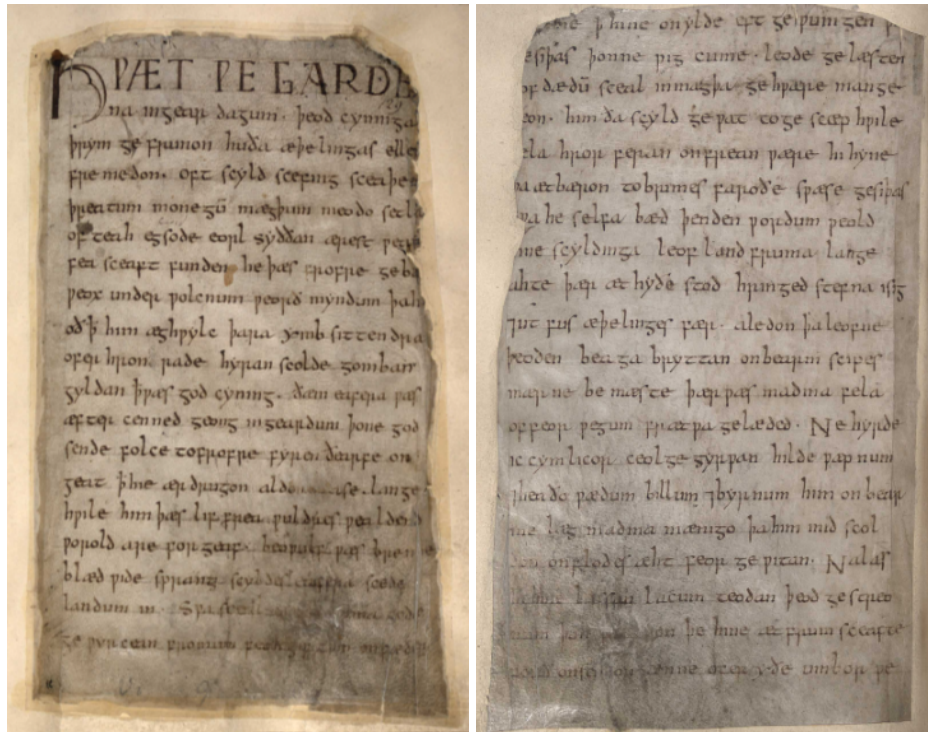 HǷÆT ǷE GARDE
na ingear dagum. þeod cyninga
þrym ge frunon huða æþelingas elle
fre medon. oft scyld scefing sceaþe
þreatum monegū mægþum meodo setla
of teah egsode eorl syððan ærest ƿear
fea sceaft funden he þæs frofre geba
ƿeox under ƿolcnum ƿeorð myndum þah
oð ꝥ him æghƿylc þara ymb sittendra
ofer hron rade hyran scolde gomban
gyldan ꝥ ƿæs god cyning. ðæm eafera ƿæs
æfter cenned geong ingeardum þone god
sende folce tofrofre fyren ðearfe on
geat ꝥ hie ær drugon aldor ase. lange
hƿile him þæs lif frea ƿuldres ƿealdend
ƿorold are for geaf. beoƿulf ƿæs breme
blæd ƿide sprang scyldes eafera scede
landum in. Sƿa sceal guma gode
ge ƿyrcean fromum feoh giftum on fæder
ꝥ hine on ylde eft ge ƿuni gen
esiþas þonne ƿig cume. leode ge læsten
of dædū sceal in mægþa ge hƿære man ge
eon. him ða scyld ge ƿat to ge scæp hƿile
ela hror feran on frean ƿære hi hyne
þa æt bæron to brimes faroðe sƿæse gesiþas
ƿa he selfa bæd þenden ƿordum ƿeold
ine scyldinga leof land fruma lange
ahte þær æt hyðe stod hringed stefna isig
⁊ ut fus æþelinges fær. aledon þa leofne
þeoden beaga bryttan on bearm scipes
mærne be mæste þær ƿæs madma fela
of feor ƿegum frætƿa gelæded. Ne hyrde
ic cymlicor ceol ge gyrƿan hilde ƿæpnum
⁊ heaðo ƿædum billum ⁊ byrnum him on bear
me læg madma mænigo þa him mid scol
don on flodes æht feor ge ƿitan. Nalæs
hi hine læssan lacum teodan þeod ge streo
num þon þe hine æt frum sceafte
forð onsendon ænne ofer yðe umbor ƿe